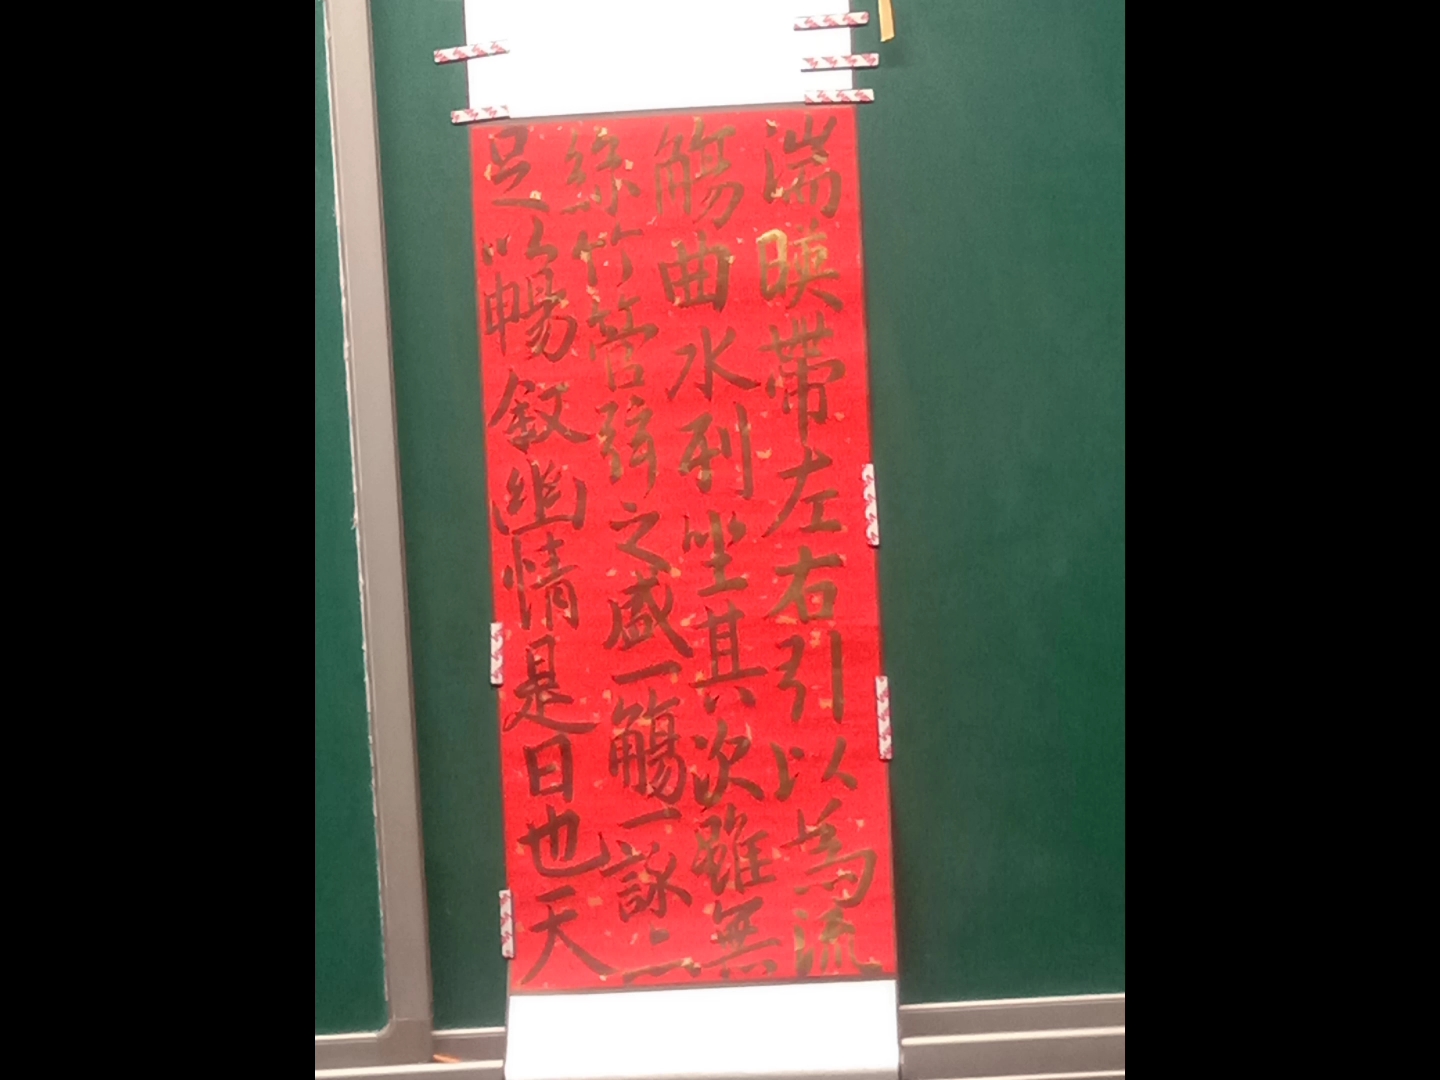 湍暎帶左右引以為流
觴曲水列坐其次雖無
絲竹管弦之盛一觴一詠亦
足以暢敘幽情是日也天